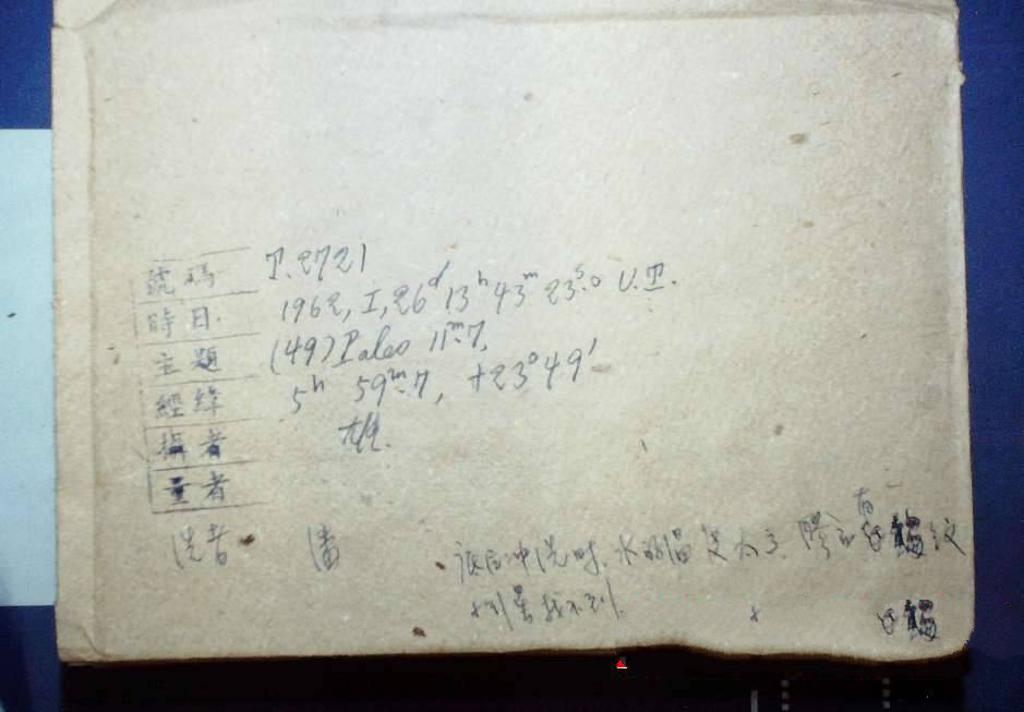 號碼 P.2721
時日 1962, I, 26ᵈ 13ʰ 43ᵐ 23ˢ.0 U.T.
主題 (49) Pales 11ᵐ.7,
經緯 5ʰ 59ᵐ.7, +23°49′
攝者 雄.
量者
洗者 潘
冲洗时, 水的温
找不到.